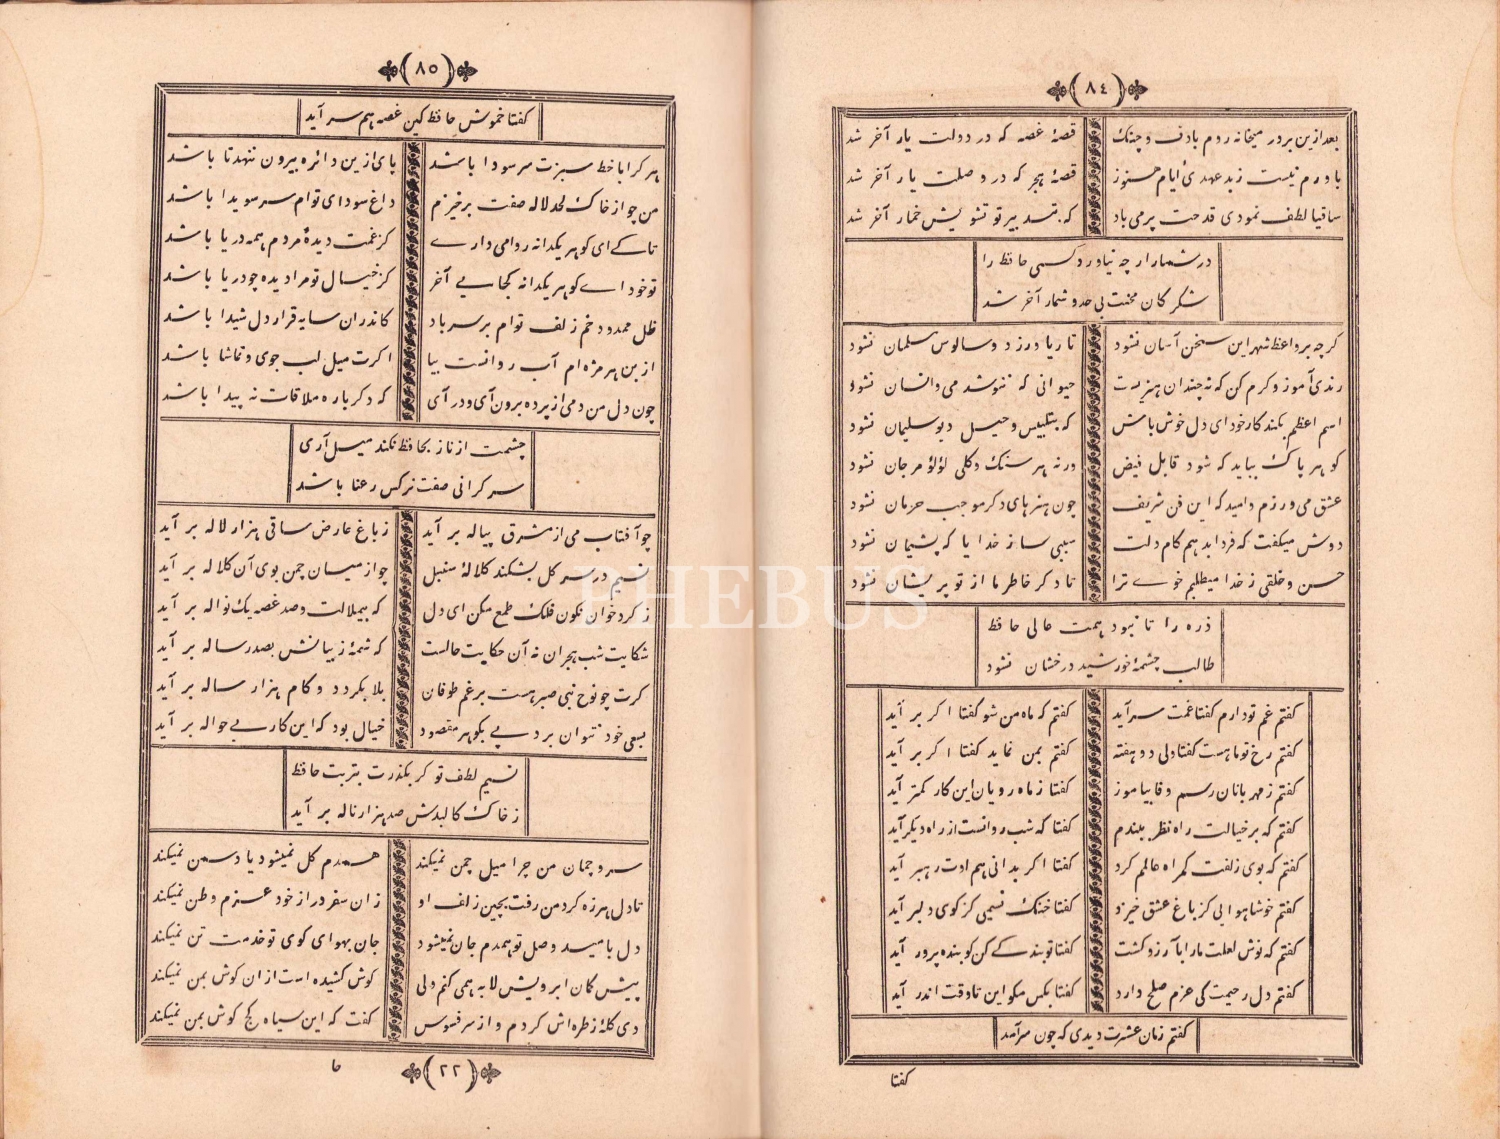 (٨٤)
بعد ازین بر در میخانه روم با دف و چنک قصهٔ غصه که در دولت یار آخر شد
باورم نیست ز بد عهدیٔ ایام هنوز قصهٔ هجر که در وصلت یار آخر شد
ساقیا لطف نمودی قدحت پر می باد که بتدبیر تو تشویش خمار آخر شد
در شمار ار چه نیاورد کسی حافظ را
شکر کان محنت بی حد و شمار آخر شد
کر چه بر واعظ شهر این سخن آسان نشود تا ریا ورزد و سالوس مسلمان نشود
رندی آموز و کرم کن که نه چندان هنریست حیوانی که ننوشد می و انسان نشود
اسم اعظم بکند کار خود ای دل خوش باش که بتلبیس و حیل دیو سلیمان نشود
کوهر پاک بباید که شود قابل فیض ورنه هر سنک و کلی لؤلؤ مرجان نشود
عشق می ورزم و امید که این فن شریف چون هنرهای دکر موجب حرمان نشود
دوش میکفت که فردا بدهم کام دلت سببی ساز خدایا که پشیمان نشود
حسن و خلقی ز خدا میطلبم خوے ترا تا دکر خاطر ما از تو پریشان نشود
ذره را تا نبود همت عالی حافظ
طالب چشمهٔ خورشید درخشان نشود
کفتم غم تو دارم کفتا غمت سر آید کفتم که ماه من شو کفتا اکر بر آید
کفتم رخ تو ماهست کفتا ولی دو هفته کفتم بمن نماید کفتا اکر بر آید
کفتم ز مهربانان رسم وفا بیاموز کفتا ز ماه رویان این کار کمتر آید
کفتم که بر خیالت راه نظر ببندم کفتا که شب روانست از راه دیکر آید
کفتم که بوی زلفت کمراه عالمم کرد کفتا اکر بدانی هم اوت رهبر آید
کفتم خوشا هوایی کز باغ عشق خیزد کفتا خنک نسیمی کز کوی دلبر آید
کفتم که نوش لعلت ما را بآرزو کشت کفتا تو بندکے کن کو بنده پرور آید
کفتم دل رحیمت کی عزم صلح دارد کفتا بکس مکو این تا وقت اندر آید
کفتم زمان عشرت دیدی که چون سر آمد
کفتا
(٨٥)
کفتا خموش حافظ کین غصه هم سر آید
هر کرا با خط سبزت سر سودا باشد پای ازین دائره بیرون ننهد تا باشد
من چو از خاک لحد لاله صفت برخیزم داغ سودای توام سر سویدا باشد
تا کے ای کوهر یکدانه روا می دارے کز غمت دیدهٔ مردم همه دریا باشد
تو خود اے کوهر یکدانه کجایے آخر کز خیال تو مرا دیده چو دریا باشد
ظل ممدود خم زلف توام بر سر باد کاندران سایه قرار دل شیدا باشد
از بن هر مژه ام آب روانست بیا اکرت میل لب جوی و تماشا باشد
چون دل من دمی از پرده برون آی و در آی که دکر باره ملاقات نه پیدا باشد
چشمت از ناز بحافظ نکند میل آری
سرکرانی صفت نرکس رعنا باشد
چو آفتاب می از مشرق پیاله بر آید ز باغ عارض ساقی هزار لاله بر آید
نسیم در سر کل بشکند کلالهٔ سنبل چو از میان چمن بوی آن کلاله بر آید
ز کرد خوان نکون فلک طمع مکن ای دل که بیملالت و صد غصه یک نواله بر آید
شکایت شب هجران نه آن حکایت حالست که شمهٔ ز بیانش بصد رساله بر آید
کرت چو نوح نبی صبر هست بر غم طوفان بلا بکردد و کام هزار ساله بر آید
بسعی خود نتوان برد پے بکوهر مقصود خیال بود که این کار بے حواله بر آید
نسیم لطف تو کر بکذرت بتربت حافظ
ز خاک کالبدش صد هزار ناله بر آید
سرو چمان من چرا میل چمن نمیکند همدم کل نمیشود یاد سمن نمیکند
تا دل هرزه کرد من رفت بچین زلف او زان سفر دراز خود عزم وطن نمیکند
دل بامید وصل تو همدم جان نمیشود جان بهوای کوی تو خدمت تن نمیکند
پیش کمان ابرویش لابه همی کنم ولی کوش کشیده است از ان کوش بمن نمیکند
دی کلهٔ ز طره اش کردم و از سر فسوس کفت که این سیاه کج کوش بمن نمیکند
(٢٢)
حا
PHEBUS